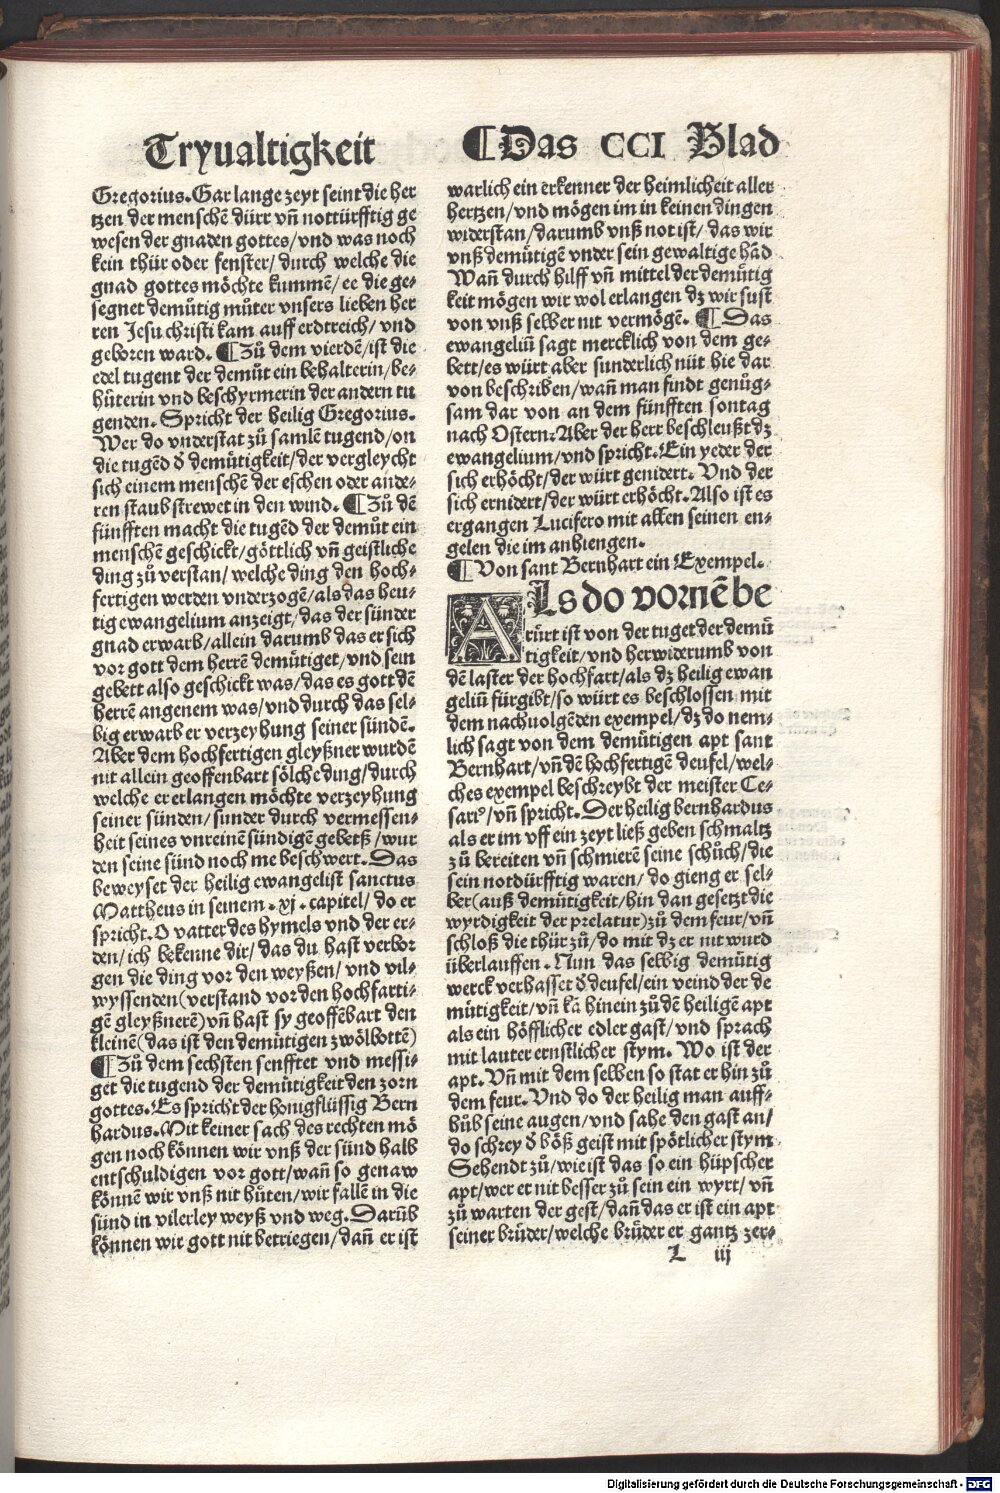 Tryualtigkeit
¶Das CCI Blad
Gregorius. Gar lange zeyt seint die her
tzen der menschē dürr vñ nottürfftig ge
wesen der gnaden gottes/vnd was noch
kein thür oder fenster/durch welche die
gnad gottes möchte kummē/ee die ge-
segnet demůtig můter vnsers lieben her
ren Jesu christi kam auff erdtreich/vnd
geboren ward. ¶Zů dem vierdē/ist die
edel tugent der demůt ein behalterin/be-
hüterin vnd beschyrmerin der andern tu
genden. Spricht der heilig Gregorius.
Wer do vnderstat zů samlē tugend/on
die tugēd d̄ demütigkeit/der vergleycht
sich einem menschē der eschen oder ande-
ren staub strewet in den wind. ¶Zů dē
fünfften macht die tugēd der demůt ein
menschē geschickt/göttlich vñ geistliche
ding zů verstan/welche ding den hoch-
fertigen werden vnderzogē/als das heu-
tig ewangelium anzeigt/das der sünder
gnad erwarb/allein darumb das er sich
vor gott dem herrē demütiget/vnd sein
gebett also geschickt was/das es gott dē
herrē angenem was/vnd durch das sel-
big erwarb er verzeyhung seiner sündē.
Aber dem hochfertigen gleyßner wurdē
nit allein geoffenbart sölche ding/durch
welche er erlangen möchte verzeyhung
seiner sünden/sunder durch vermessen-
heit seines vnreinē sündigē gebetß/wur
den seine sünd noch me beschwert. Das
beweyset der heilig ewangelist sanctus
Mattheus in seinem .xj. capitel/do er
spricht. O vatter des hymels vnd der er-
den/ich bekenne dir/das du hast verbor
gen die ding vor den weyßen/vnd vil-
wyssenden(verstand vor den hochfarti-
gē gleyßnerē)vñ hast sy geoffēbart den
kleinē(das ist den demütigen zwölbottē)
¶Zů dem sechsten senfftet vnd messi-
get die tugend der demütigkeit den zorn
gottes. Es spricht der honigflüssig Bern
hardus. Mit keiner sach des rechten mö
gen noch können wir vnß der sünd halb
entschuldigen vor gott/wañ so genaw
könnē wir vnß nit hüten/wir fallē in die
sünd in vilerley weyß vnd weg. Darūb
können wir gott nit betriegen/dañ er ist
warlich ein erkenner der heimlicheit aller
hertzen/vnd mögen im in keinen dingen
widerstan/darumb vnß not ist/das wir
vnß demütigē vnder sein gewaltige hād
Wañ durch hilff vñ mittel der demütig
keit mögen wir wol erlangen dz wir sust
von vnß selber nit vermögē. ¶Das
ewangeliū sagt mercklich von dem ge-
bett/es würt aber sunderlich nüt hie dar
von beschriben/wañ man findt genůg-
sam dar von an dem fünfften sontag
nach Ostern: Aber der herr beschleußt dz
ewangelium/vnd spricht. Ein yeder der
sich erhöcht/der würt genidert. Vnd der
sich ernidert/der würt erhöcht. Also ist es
ergangen Lucifero mit allen seinen en-
gelen die im anhiengen.
¶Von sant Bernhart ein Exempel.
Als do vornē be
rürt ist von der tuget der demü
tigkeit/vnd herwiderumb von
dē laster der hochfart/als dz heilig ewan
geliū fürgibt/so würt es beschlossen mit
dem nachuolgēden exempel/dz do nem-
lich sagt von dem demütigen apt sant
Bernhart/vñ dē hochfertigē deufel/wel-
ches exempel beschreybt der meister Ce-
sariꝰ/vñ spricht. Der heilig bernhardus
als er im vff ein zeyt ließ geben schmaltz
zů bereiten vñ schmierē seine schůch/die
sein notdürfftig waren/do gieng er sel-
ber(auß demütigkeit/hin dan gesetzt die
wyrdigkeit der prelatur)zů dem feur/vñ
schloß die thür zů/do mit dz er nit wurd
überlauffen. Nun das selbig demütig
werck verhasset d̄ deufel/ein veind der de
mütigkeit/vñ kā hinein zů dē heiligē apt
als ein höfflicher edler gast/vnd sprach
mit lauter ernstlicher stym. Wo ist der
apt. Vñ mit dem selben so stat er hin zů
dem feur. Vnd do der heilig man auff-
hůb seine augen/vnd sahe den gast an/
do schrey d̄ böß geist mit spötlicher stym
Sehendt zů/wie ist das so ein hüpscher
apt/wer er nit besser zů sein ein wyrt/vñ
zů warten der gest/dañ das er ist ein apt
seiner brüder/welche brüder er gantz zer-
L iij
Digitalisierung gefördert durch die Deutsche Forschungsgemeinschaft - DFG